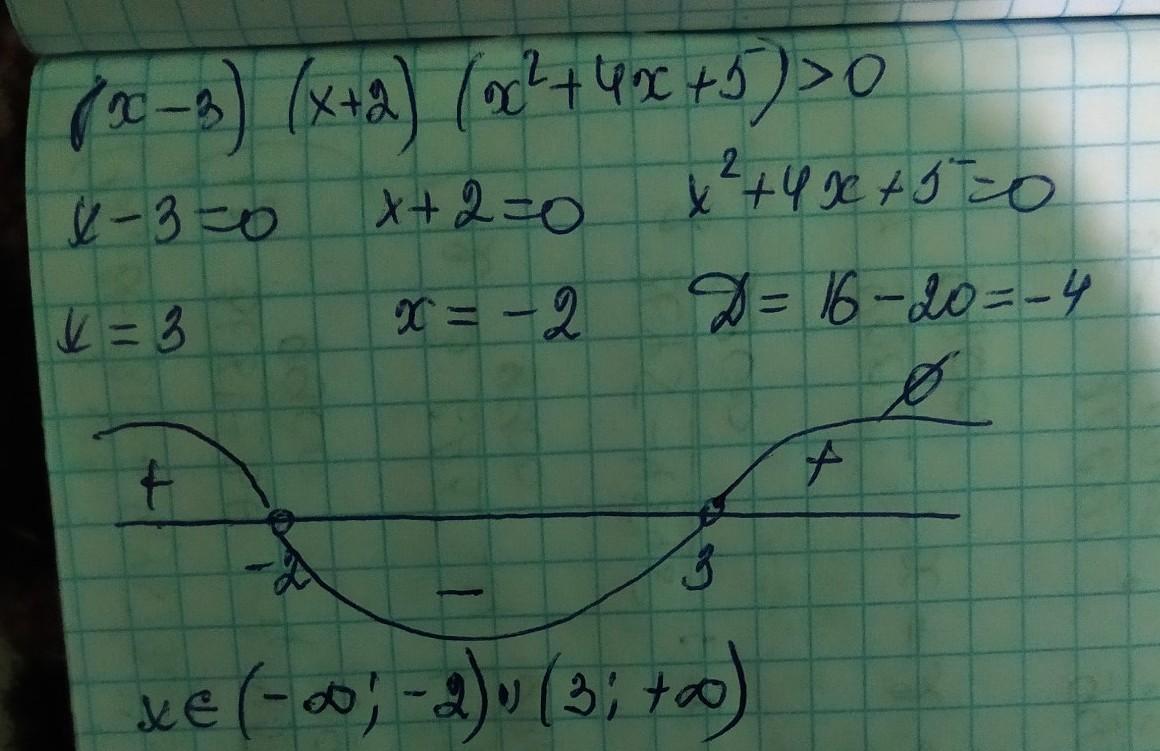 (x-3) (x+2) (x²+4x+5)>0
x-3=0 x+2=0 x²+4x+5=0
x=3 x=-2 D=16-20=-4
∅
+ +
-2 3
−
x∈(-∞; -2)∪(3; +∞)